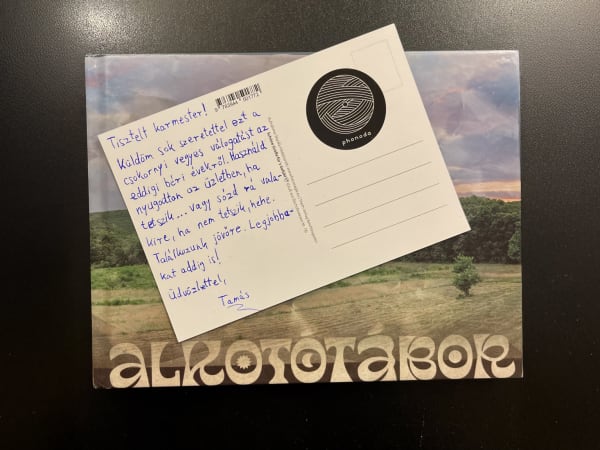 Tisztelt karmester!
Küldöm sok szeretettel ezt a
csokornyi vegyes válogatást az
eddigi béri évekről. Használd
nyugodton az üzletben, ha
tetszik... vagy sózd rá vala-
kire, ha nem tetszik, hehe.
Találkozunk jövőre. Legjobba-
kat addig is!
Üdvözlettel,
Tamás
phonodo
ALKOTÓTÁBOR